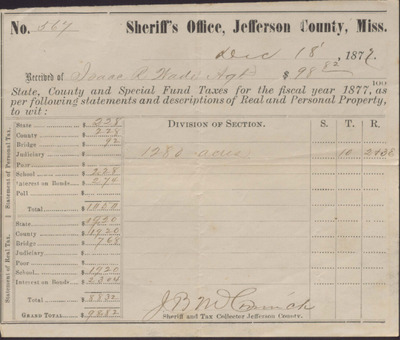 No. 567 Sheriff's Office, Jefferson County, Miss.
Dec 18 1877.
Received of Isaac R. Wade Agt $98 82/100
State, County and Special Fund Taxes for the fiscal year 1877, as
per following statements and descriptions of Real and Personal Property,
to wit:
Statement of Personal Tax.
State $ 228 DIVISION OF SECTION. S. T. R.
County $ 228
Bridge $ 92
Judiciary $ 1280 acres 10
Poor $
School $ 228
Interest on Bonds $ 270
Poll $
Total $ 1050
Statement of Real Tax.
State $ 1920
County $ 1920
Bridge $ 768
Judiciary $
Poor $
School $ 1920
Interest on Bonds $ 2304
Total $ 8832
GRAND TOTAL $ 9882
J B McCormick
Sheriff and Tax Collector Jefferson County.